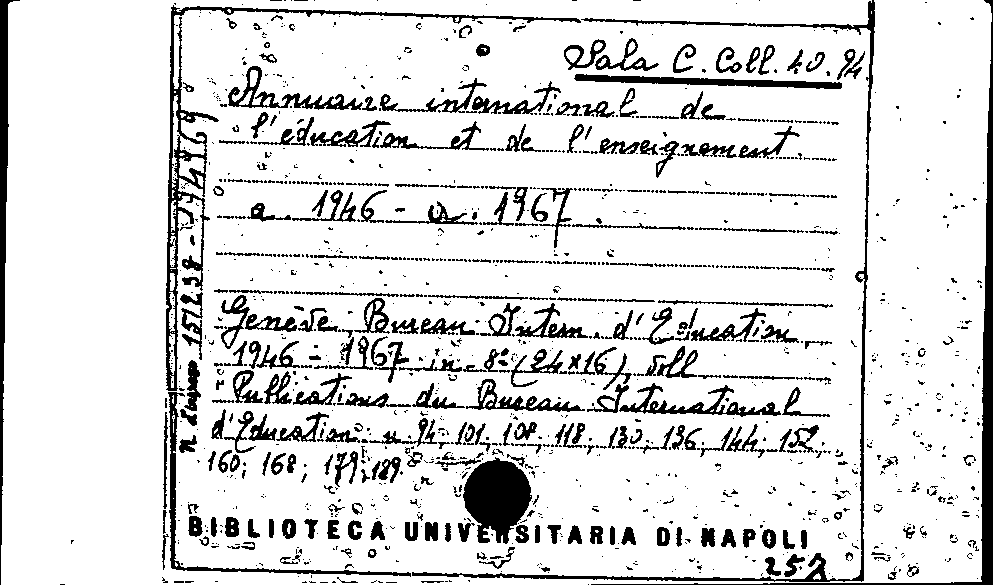 Sala C. Coll. 40. 94.
Annuaire international de
l'éducation et de l'enseignement.
a. 1946 - a. 1967.
Genève, Bureau Intern. d'Education,
1946 - 1967 in-8° (24x16), voll
Publications du Bureau International
d'Education: n 94; 101; 108; 118; 130; 136; 144; 152;
160; 168; 179; 189.
BIBLIOTECA UNIVERSITARIA DI NAPOLI
257